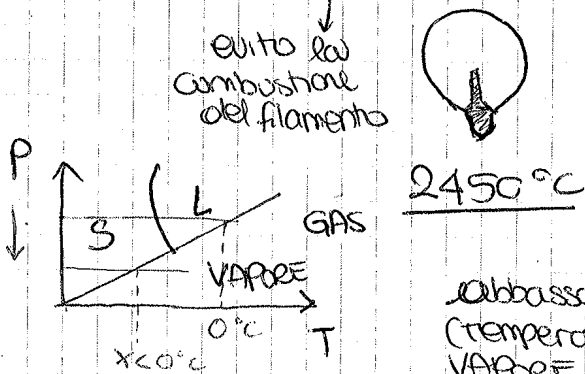 evito la
combustione
del filamento
2450°C
P
S
L
GAS
VAPORE
0°C
T
x<0°C
abbasso
(tempera
VAPORE